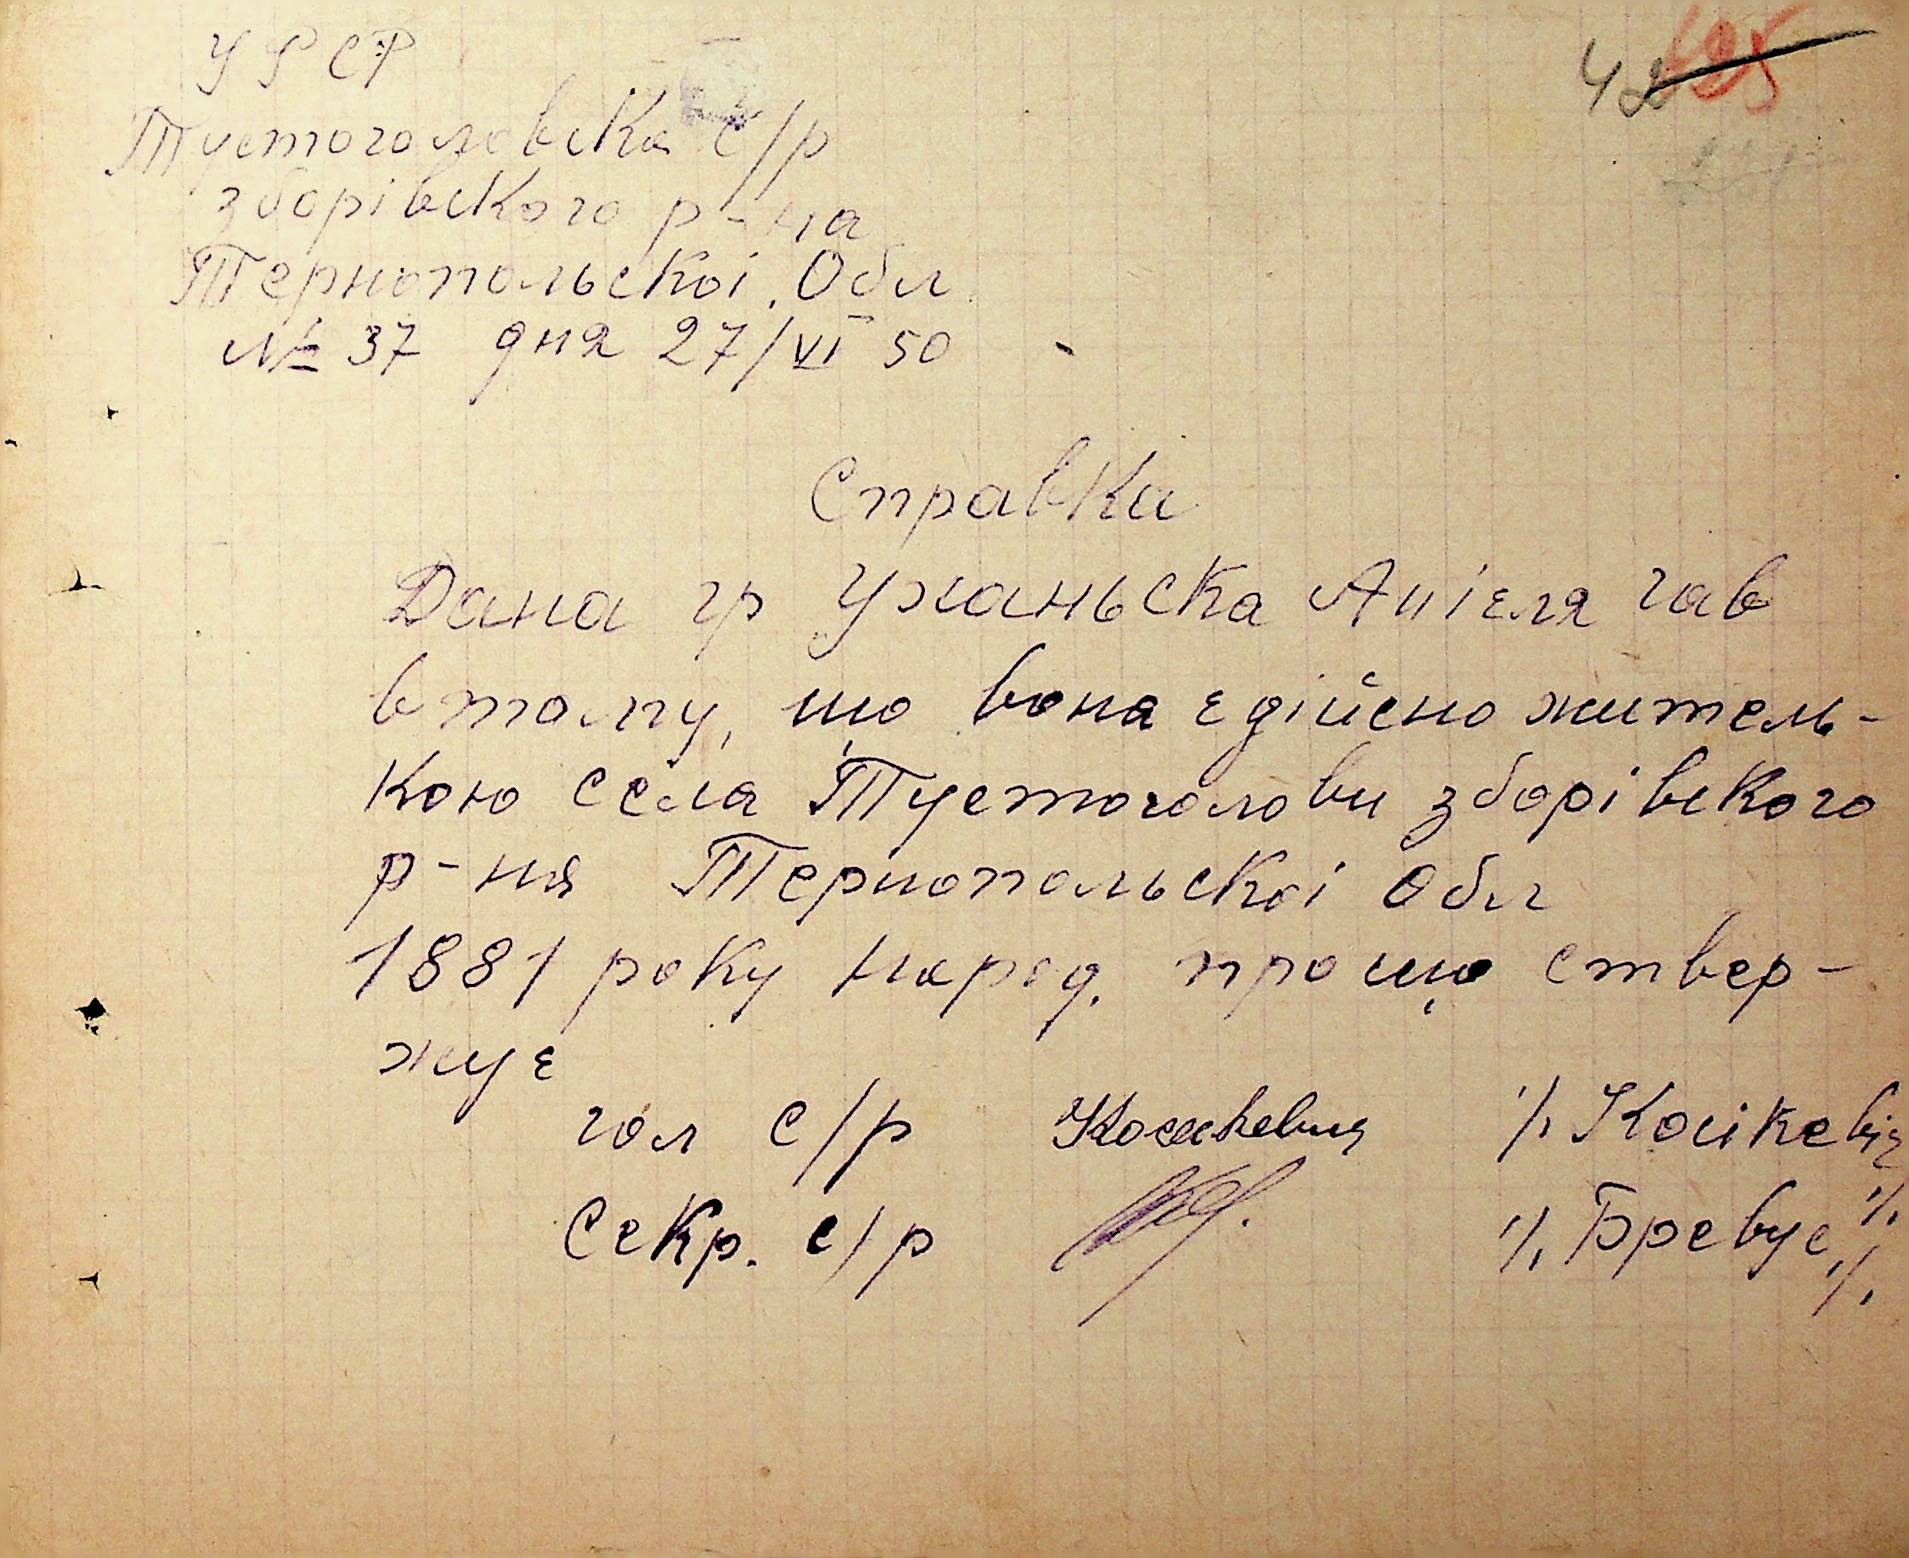 УРСР
42 625
Тустоголовска с/р
зборівского р-на
Тернопольскої Обл
№ 37 дня 27/VI 50
Справка
Дана гр Ужаньска Анієля гав
в тому, що вона є дійсно житель-
кою села Тустоголови зборівского
р-ня Тернопольскої Обл
1881 року народ. про що ствер-
жує
гол с/р Коськевич /. Коцікевіч /.
Секр. с/р /. Бревус /.